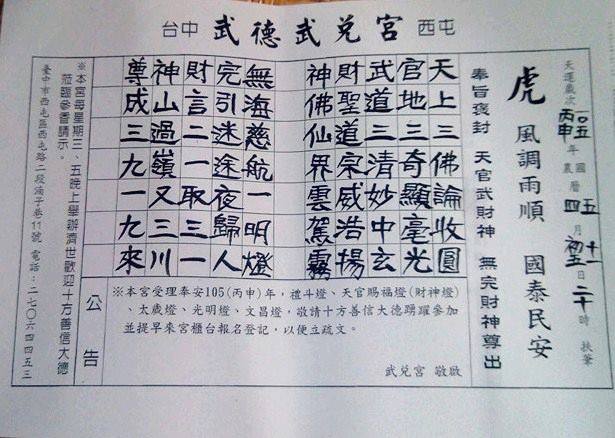 台中 武德武兌宮 西屯
天運歲次一〇五丙申年 國曆五月十一日 農曆四月初五日 二十時 扶筆
虎 風調雨順 國泰民安
奉旨褒封 天官武財神 無完財神尊出
天上三佛論收圓
官地三奇顯毫光
武道三清妙中玄
財聖道宗威浩揚
神佛仙界雲駕霧
無海慈航一明燈
完引迷途夜歸人
財言二一取三一
神山過嶺又三川
尊成三九一九來
公告
※本宮受理奉安105(丙申)年,禮斗燈、天官賜福燈(財神燈)
、太歲燈、光明燈、文昌燈,敬請十方善信大德踴躍參加
並提早來宮櫃台報名登記,以便立疏文。
武兌宮 敬啟
※本宮每星期三、五晚上舉辦濟世歡迎十方善信大德
蒞臨參香請示。
臺中市西屯區西屯路二段湳子巷11號 電話:二七〇六四四五三